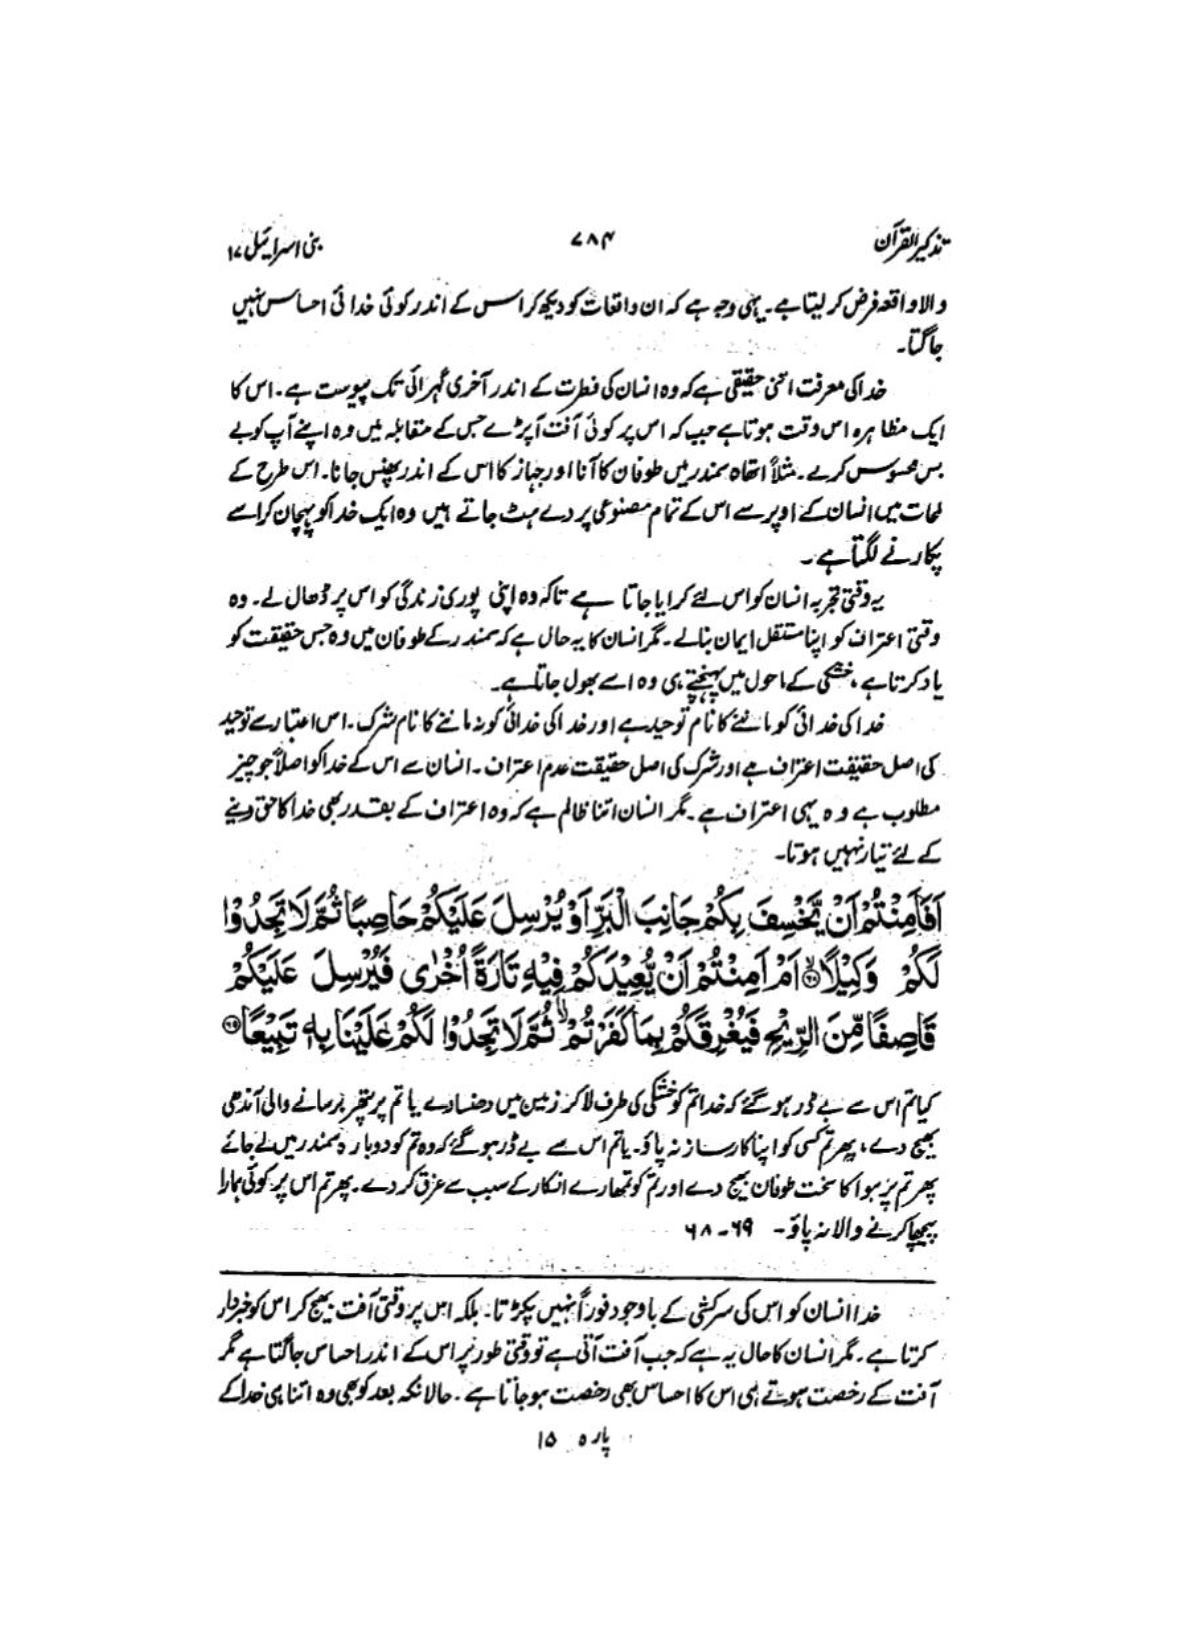 تذکیر القرآن ۷۸۴ بنی اسرائیل ۱۷
والا واقعہ فرض کر لیتا ہے۔ یہی وجہ ہے کہ ان واقعات کو دیکھ کر اس کے اندر کوئی خدائی احساس نہیں
جاگتا۔
خدا کی معرفت اتنی حقیقی ہے کہ وہ انسان کی فطرت کے اندر آخری گہرائی تک پیوست ہے۔ اس کا
ایک مظاہرہ اس وقت ہوتا ہے جب کہ اس پر کوئی آفت آپڑے جس کے مقابلہ میں وہ اپنے آپ کو بے
بس محسوس کرے۔ مثلاً اتھاہ سمندر میں طوفان کا آنا اور جہاز کا اس کے اندر پھنس جانا۔ اس طرح کے
لمحات میں انسان کے اوپر سے اس کے تمام مصنوعی پردے ہٹ جاتے ہیں وہ ایک خدا کو پہچان کر اسے
پکارنے لگتا ہے۔
یہ وقتی تجربہ انسان کو اس لئے کرایا جاتا ہے تاکہ وہ اپنی پوری زندگی کو اس پر ڈھال لے۔ وہ
وقتی اعتراف کو اپنا مستقل ایمان بنالے۔ مگر انسان کا یہ حال ہے کہ سمندر کے طوفان میں وہ جس حقیقت کو
یاد کرتا ہے، خشکی کے ماحول میں پہنچتے ہی وہ اسے بھول جاتا ہے۔
خدا کی خدائی کو ماننے کا نام توحید ہے اور خدا کی خدائی کو نہ ماننے کا نام شرک۔ اس اعتبار سے توحید
کی اصل حقیقت اعتراف ہے اور شرک کی اصل حقیقت عدم اعتراف۔ انسان سے اس کے خدا کو اصلاً جو چیز
مطلوب ہے وہ یہی اعتراف ہے۔ مگر انسان اتنا ظالم ہے کہ وہ اعتراف کے بقدر بھی خدا کا حق دینے
کے لئے تیار نہیں ہوتا۔
اَفَاَمِنْتُمْ اَنْ يَّخْسِفَ بِكُمْ جَانِبَ الْبَرِّ اَوْ يُرْسِلَ عَلَيْكُمْ حَاصِبًا ثُمَّ لَا تَجِدُوْا
لَكُمْ وَكِيْلًا ۙ۶۸ اَمْ اَمِنْتُمْ اَنْ يُّعِيْدَكُمْ فِيْهِ تَارَةً اُخْرٰى فَيُرْسِلَ عَلَيْكُمْ
قَاصِفًا مِّنَ الرِّيْحِ فَيُغْرِقَكُمْ بِمَا كَفَرْتُمْ ۙ ثُمَّ لَا تَجِدُوْا لَكُمْ عَلَيْنَا بِهٖ تَبِيْعًا ۶۹
کیا تم اس سے بے ڈر ہو گئے کہ خدا تم کو خشکی کی طرف لاکر زمین میں دھنسادے یا تم پر پتھر برسانے والی آندھی
بھیج دے، پھر تم کسی کو اپنا کارساز نہ پاؤ۔ یا تم اس سے بے ڈر ہو گئے کہ وہ تم کو دوبارہ سمندر میں لے جائے
پھر تم پر ہوا کا سخت طوفان بھیج دے اور تم کو تمھارے انکار کے سبب سے غرق کردے۔ پھر تم اس پر کوئی ہمارا
پیچھا کرنے والا نہ پاؤ۔ ۶۹۔۶۸
خدا انسان کو اس کی سرکشی کے باوجود فوراً نہیں پکڑتا۔ بلکہ اس پر وقتی آفت بھیج کر اس کو خبردار
کرتا ہے۔ مگر انسان کا حال یہ ہے کہ جب آفت آتی ہے تو وقتی طور پر اس کے اندر احساس جاگتا ہے مگر
آفت کے رخصت ہوتے ہی اس کا احساس بھی رخصت ہو جاتا ہے۔ حالانکہ بعد کو بھی وہ اتنا ہی خدا کے
پارہ ۱۵